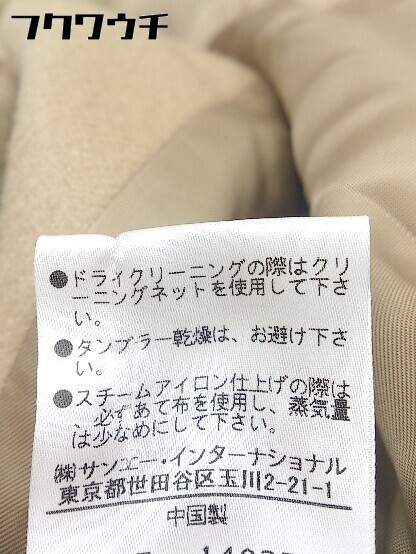 フクワウチ
●ドライクリーニングの際はクリ
ーニングネットを使用して下さ
い。
●タンブラー乾燥は、お避け下さ
い。
●スチームアイロン仕上げの際は
、必ずあて布を使用し、蒸気量
は少なめにして下さい。
㈱サンエー・インターナショナル
東京都世田谷区玉川2-21-1
中国製